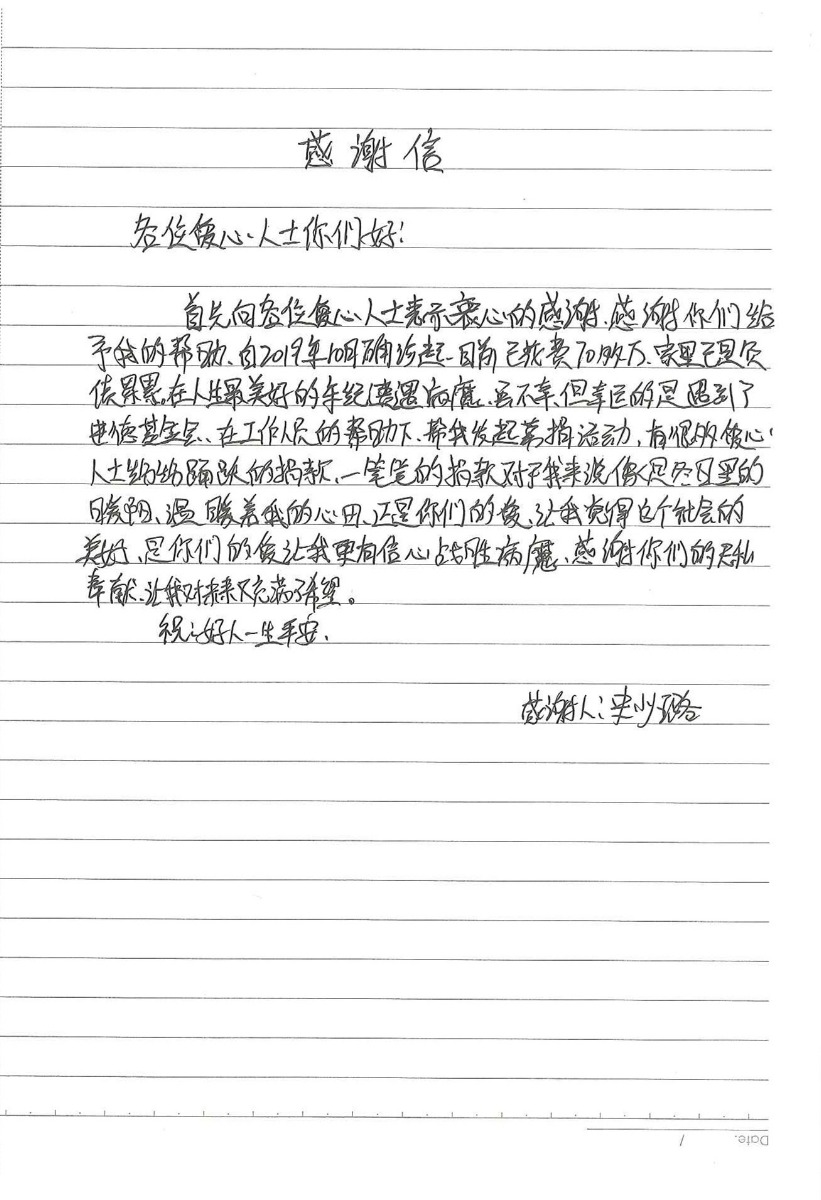 感谢信
各位爱心人士你们好!
首先向各位爱心人士表示衷心的感谢、感谢你们给
予我的帮助、自2019年10月确诊起、目前已花费70多万、家里已是负
债累累。在人生最美好的年纪遭遇病魔、虽不幸、但幸运的是遇到了
进德基金会、在工作人员的帮助下、帮我发起募捐活动, 有很多爱心
人士纷纷踊跃的捐款、一笔笔的捐款对于我来说像是冬日里的
暖阳、温暖着我的心田、还是你们的爱、让我觉得这个社会的
美好、是你们的爱让我更有信心战胜病魔、感谢你们的无私
奉献、让我对未来又充满了希望。
祝:好人一生平安.
感谢人:少璐
Date. /